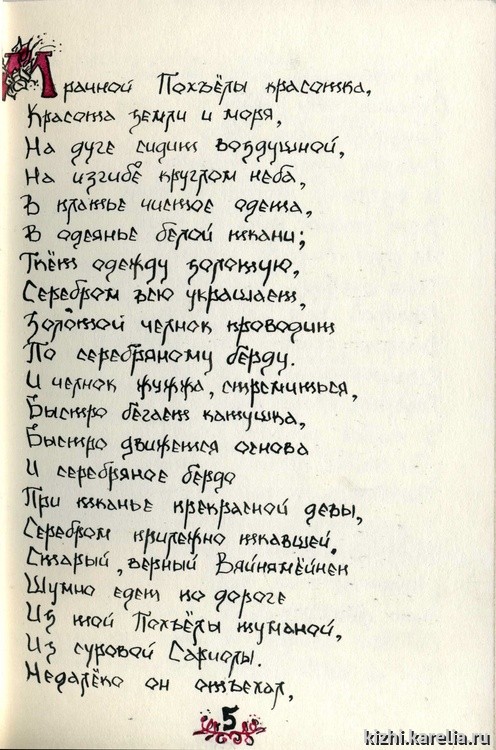 Мрачной Похъёлы красотка,
Красота земли и моря,
На дуге сидит воздушной,
На изгибе круглом неба,
В платье чистое одета,
В одеянье белой ткани;
Ткёт одежду золотую,
Серебром всю украшает,
Золотой челнок проводит
По серебряному берду.
И челнок жужжа, стремиться,
Быстро бегает катушка,
Быстро движется основа
И серебряное бёрдо
При тканье прекрасной девы,
Серебром прилежно ткавшей.
Старый, верный Вяйнямёйнен
Шумно едет по дороге
Из той Похъёлы туманой,
Из суровой Сариолы.
Недалёко он отъехал,
5
kizhi.karelia.ru